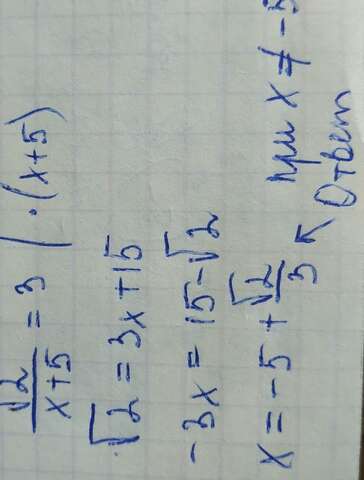 √2/(x+5) = 3 | · (x+5)
√2 = 3x + 15
-3x = 15 - √2
x = -5 + √2/3 при x ≠ -5
↖ Ответ